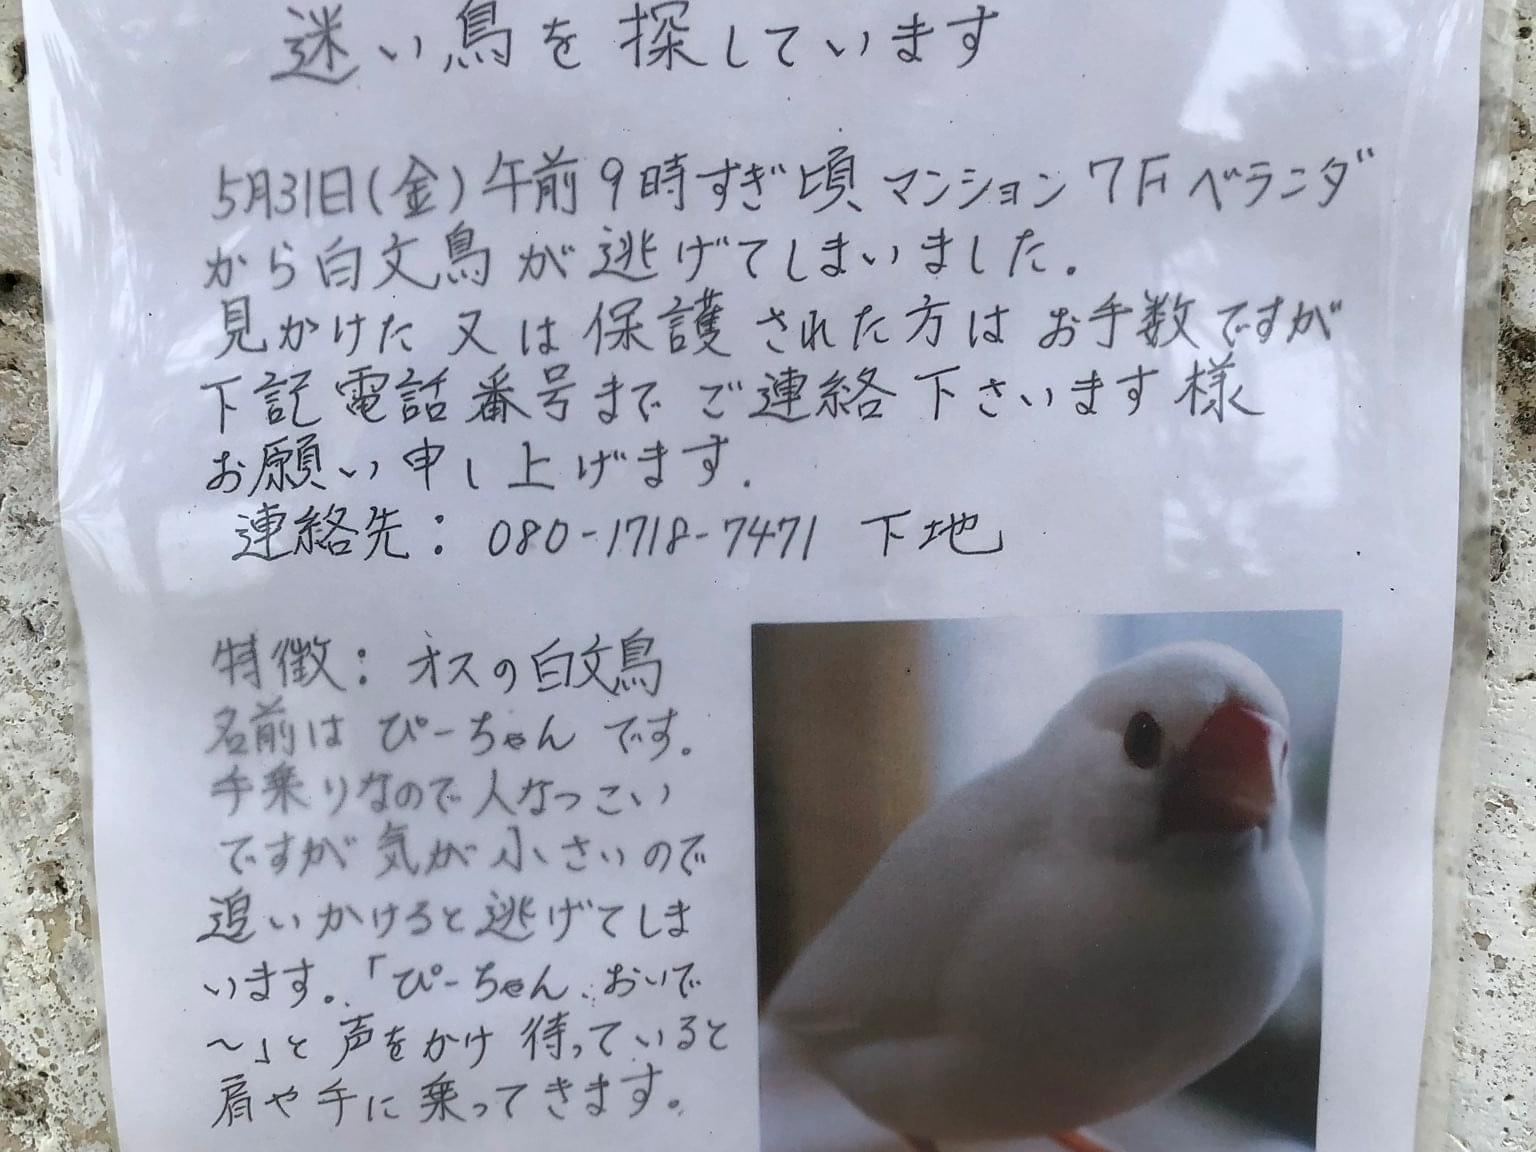 迷い鳥を探しています
5月31日(金)午前9時すぎ頃 マンション7Fベランダ
から白文鳥が逃げてしまいました。
見かけた又は保護された方はお手数ですが
下記電話番号までご連絡下さいます様
お願い申し上げます.
連絡先: 080-1718-7471 下地
特徴: オスの白文鳥
名前はぴーちゃんです。
手乗りなので人なつこい
ですが気が小さいので
追いかけると逃げてしま
います。「ぴーちゃん、おいで
〜」と声をかけ待っていると
肩や手に乗ってきます。